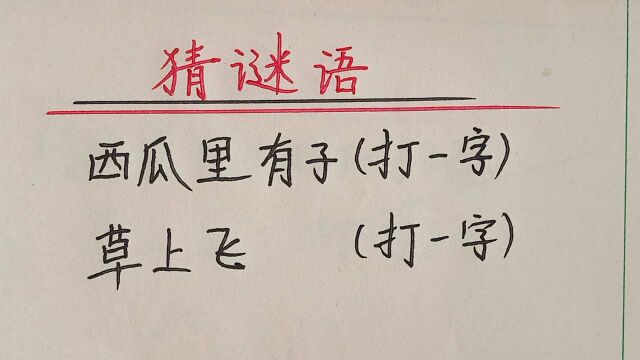 猜谜语
西瓜里有子(打一字)
草上飞 (打一字)